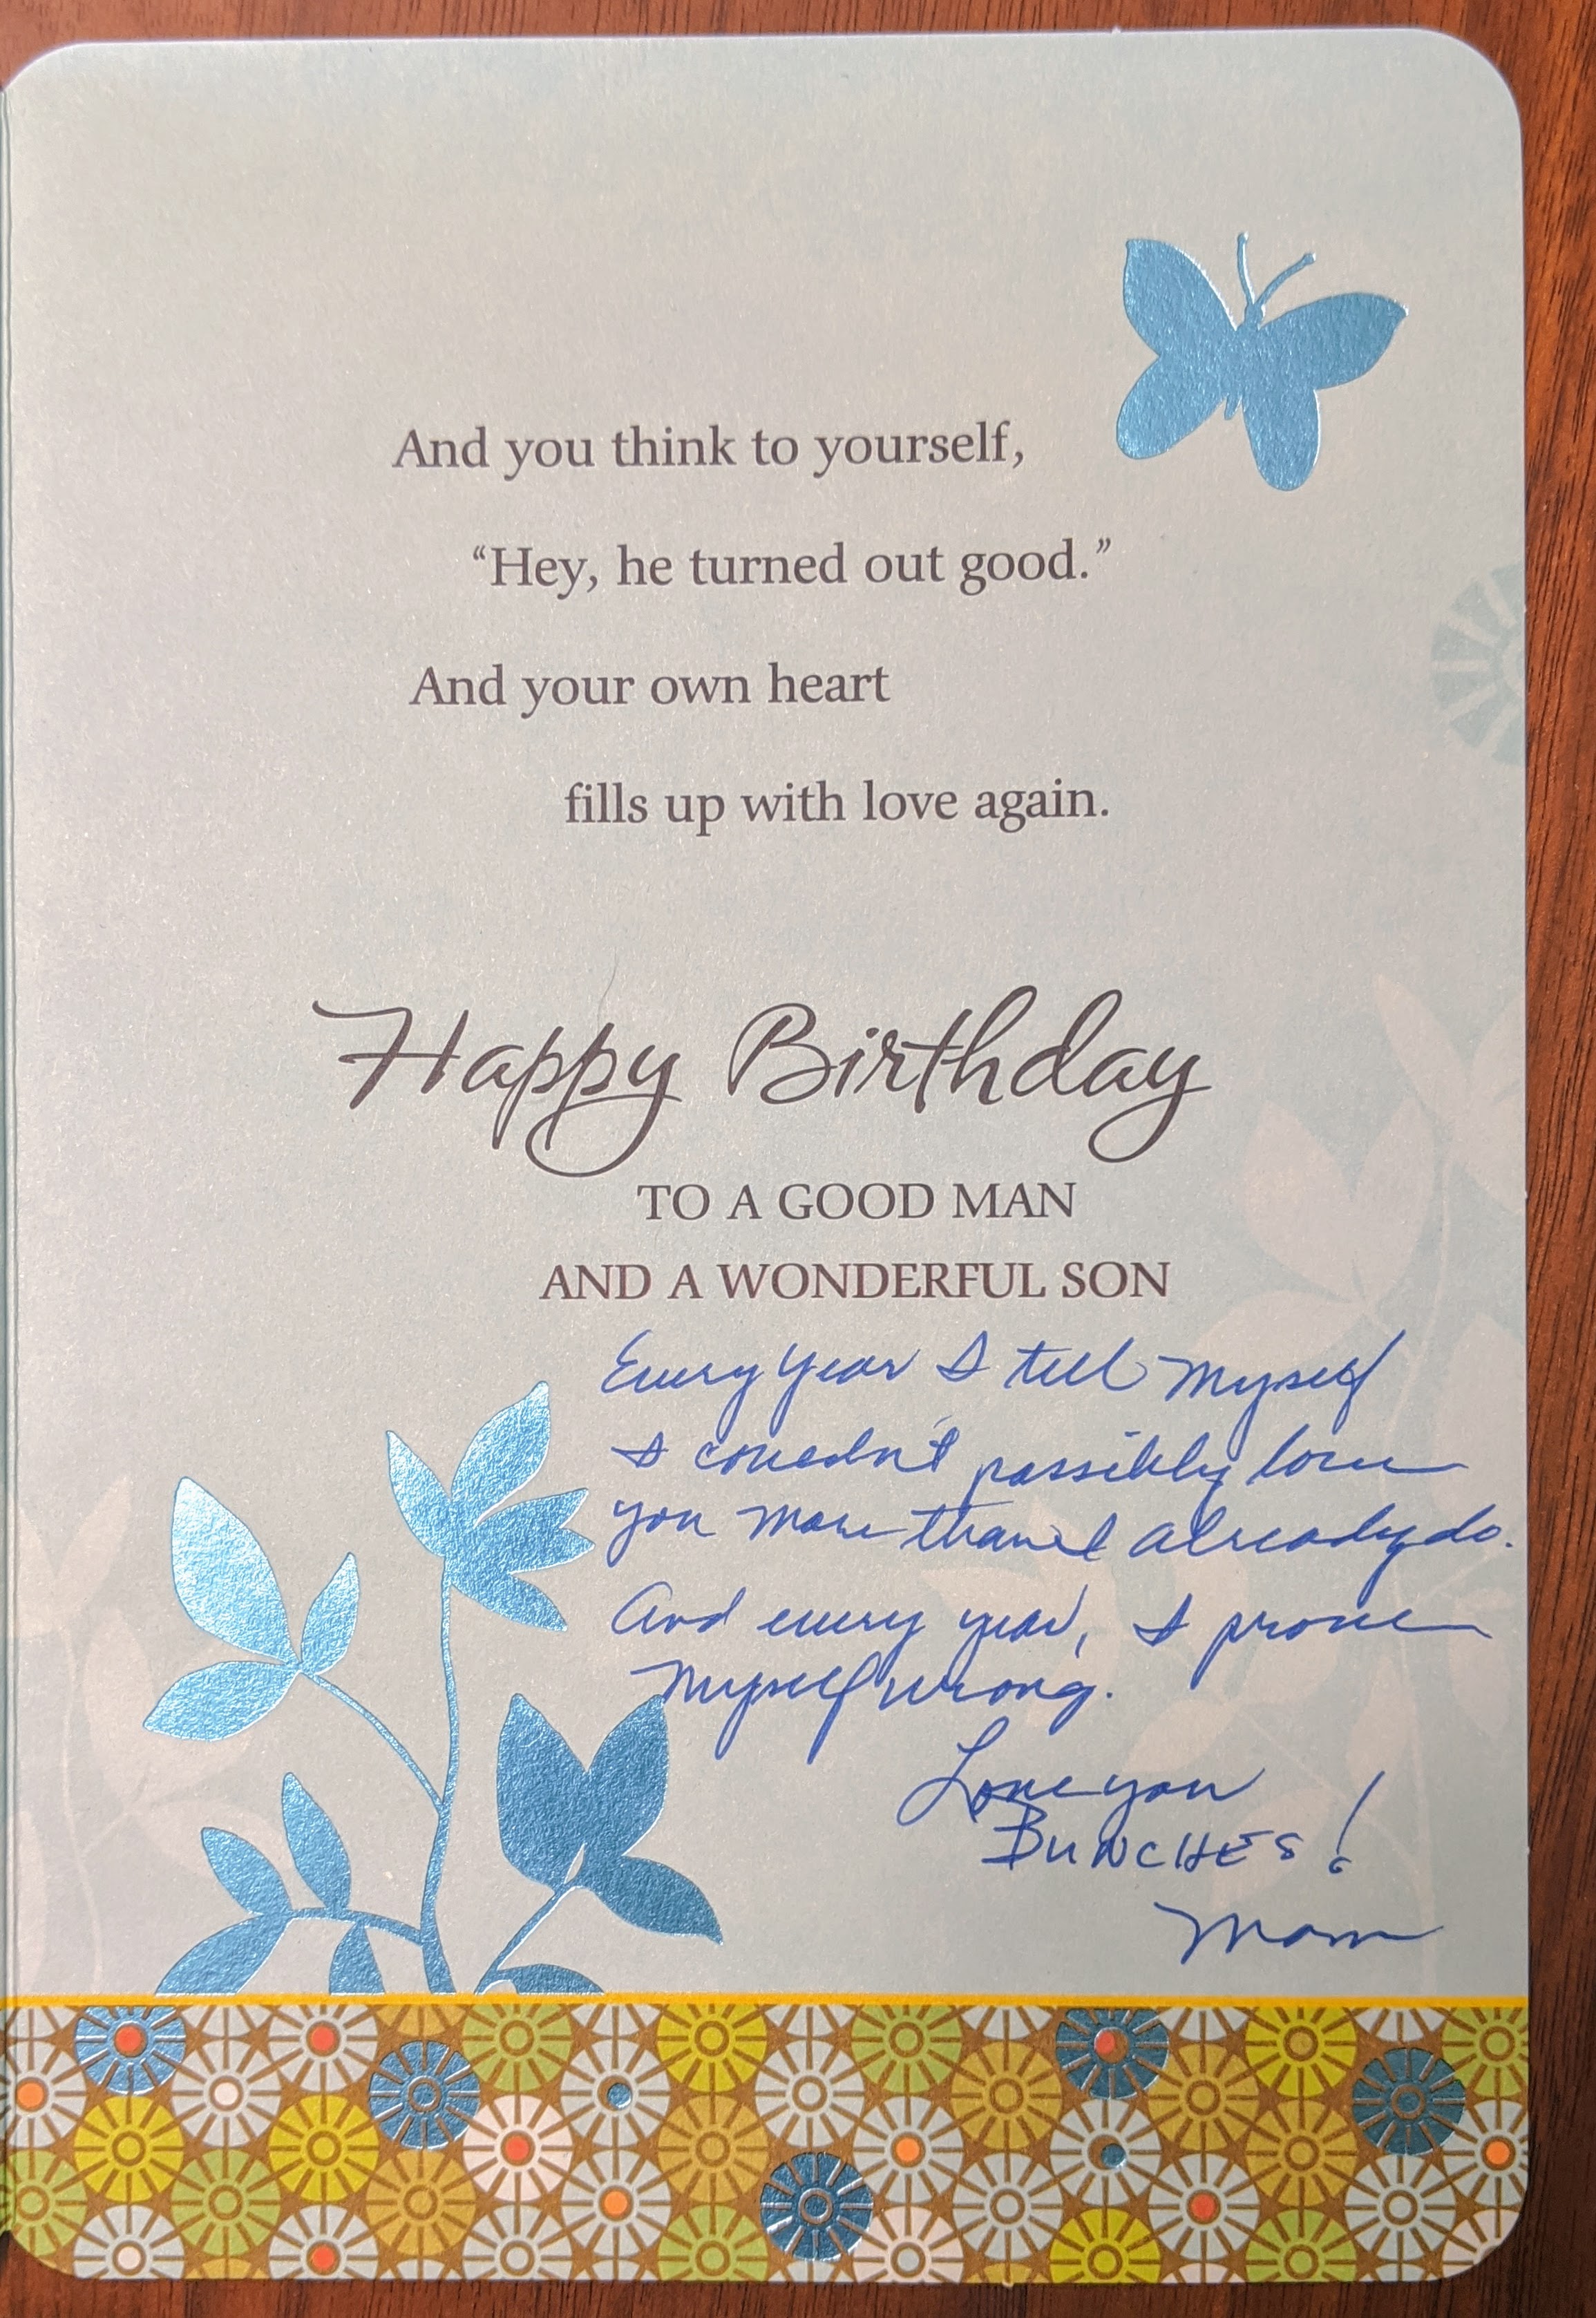 And you think to yourself,
“Hey, he turned out good.”
And your own heart
fills up with love again.
Happy Birthday
TO A GOOD MAN
AND A WONDERFUL SON
Every year I tell myself
I couldn't possibly love
you more than I already do.
And every year, I prove
myself wrong.
Love you
BUNCHES!
Mom